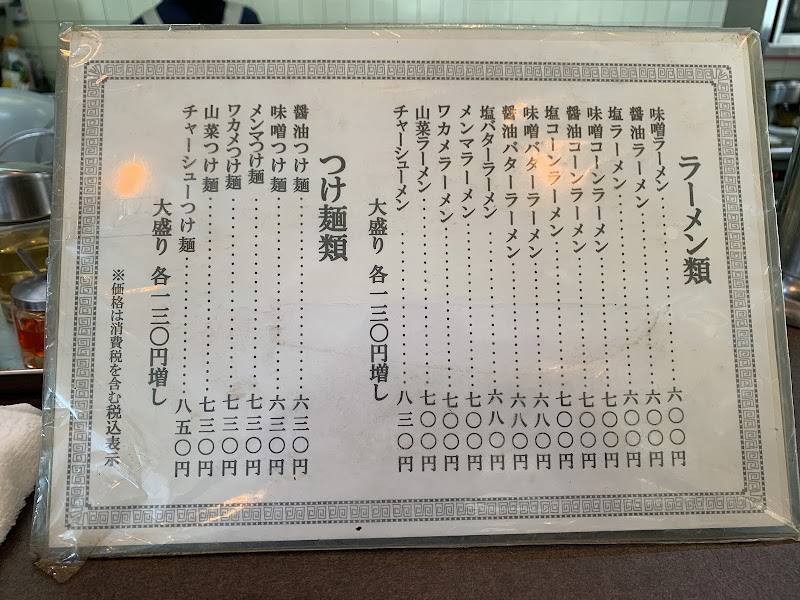 ラーメン類
味噌ラーメン……………………六〇〇円
醤油ラーメン……………………六〇〇円
塩ラーメン……………………六〇〇円
味噌コーンラーメン……………………七〇〇円
醤油コーンラーメン……………………七〇〇円
塩コーンラーメン……………………七〇〇円
味噌バターラーメン……………………六八〇円
醤油バターラーメン……………………六八〇円
塩バターラーメン……………………六八〇円
メンマラーメン……………………七〇〇円
ワカメラーメン……………………七〇〇円
山菜ラーメン……………………七〇〇円
チャーシューメン……………………八三〇円
大盛り 各一三〇円増し
つけ麺類
醤油つけ麺……………………六三〇円
味噌つけ麺……………………六三〇円
メンマつけ麺……………………七三〇円
ワカメつけ麺……………………七三〇円
山菜つけ麺……………………七三〇円
チャーシューつけ麺……………………八五〇円
大盛り 各一三〇円増し
※価格は消費税を含む税込表示